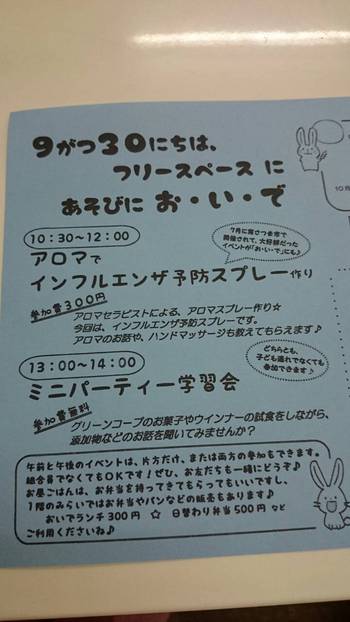 9がつ30にちは、
フリースペース に
あそびに お・い・で
10:30〜12:00
7月に南さつま市で
開催されて、大好評だった
イベントが「おいで」にも♪
アロマで
インフルエンザ予防スプレー作り
参加費300円
アロマセラピストによる、アロマスプレー作り☆
今回は、インフルエンザ予防スプレーです。
アロマのお話や、ハンドマッサージも教えてもらえます♪
13:00〜14:00
どちらとも、
子ども連れでなくても
参加できます♪
ミニパーティー学習会
参加費無料
グリーンコープのお菓子やウインナーの試食をしながら、
添加物などのお話を聞いてみませんか？
午前と午後のイベントは、片方だけ、または両方の参加もできます。
組合員でなくてもOKです！ぜひ、お友だちも一緒にどうぞ♪
お昼ごはんは、お弁当を持ってきてもらってもいいですし、
1階のみらいではお弁当やパンなどの販売もあります♪
おいでランチ300円 ☆ 日替わり弁当500円 など
ご利用くださいね♪
10月